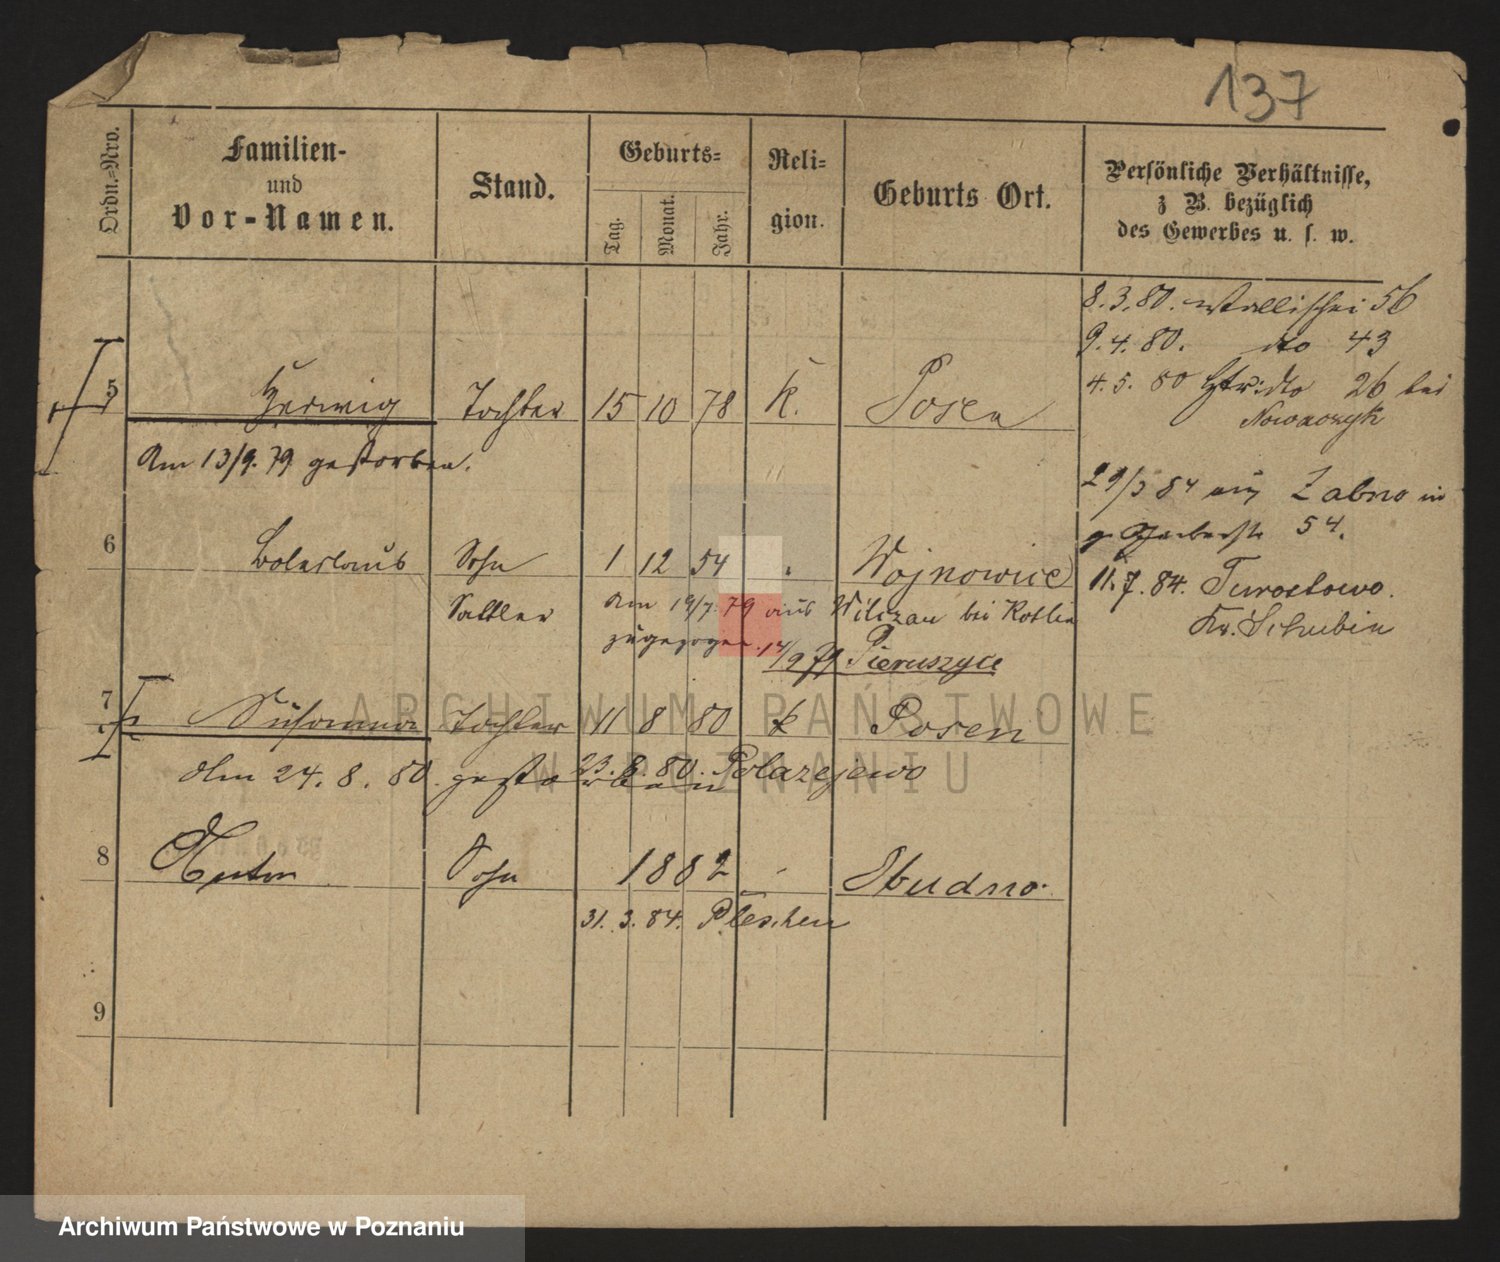 137
Ordn.-Nro.
Familien-
und
Vor-Namen.
Stand.
Geburts-
Tag. Monat. Jahr.
Reli-
gion.
Geburts Ort.
Persönliche Verhältnisse,
z B. bezüglich
des Gewerbes u. s. w.
8.3.80. Wallischei 56
9.4.80. dto 43
4.5.80 dto 26 bei
Nowaczyk
5 Herwig Tochter 15 10 78 k. Posen
Am 13/9. 79 gestorben.
29/3 84 aus Zabno in
54.
6 Boleslaus Sohn 1 12 54 Wojnowice
11.7.84. Turostowo.
Kr. Schubin
Sattler Am 19/7. 79 aus Wilczau bei Kotlin
zugezogen. 14/9 79 Pieruszyce
7 Susanna Tochter 11 8 80 k Posen
Am 24. 8. 80. gestorben
23. 8. 80. Polazejewo
8 Anton Sohn 1882 Studno.
31. 3. 84. Pleschen
9
ARCHIWUM PAŃSTWOWE
W POZNANIU
Archiwum Państwowe w Poznaniu